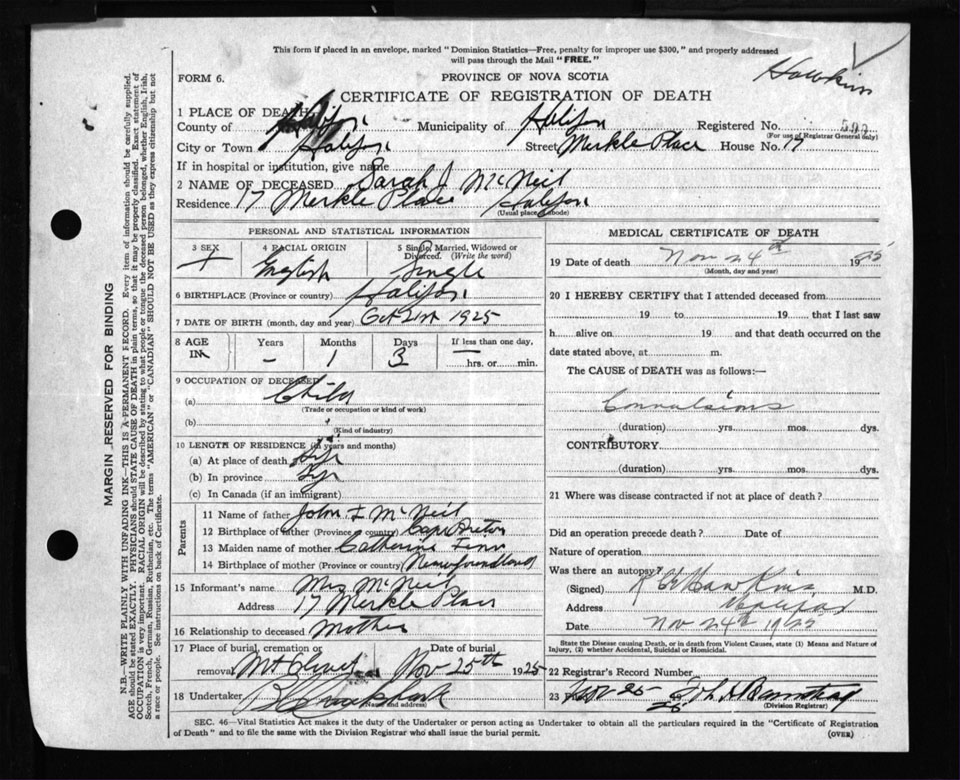 This form if placed in an envelope, marked "Dominion Statistics—Free, penalty for improper use $300," and properly addressed
will pass through the Mail "FREE."
Hawkins
FORM 6.
PROVINCE OF NOVA SCOTIA
CERTIFICATE OF REGISTRATION OF DEATH
1 PLACE OF DEATH
County of Halifax Municipality of Halifax Registered No.
(For use of Registrar General only)
City or Town Halifax Street Merkle Place House No. 17
If in hospital or institution, give name
2 NAME OF DECEASED Sarah J McNeil
Residence 17 Merkle Place Halifax
(Usual place of abode)
PERSONAL AND STATISTICAL INFORMATION
3 SEX 4 RACIAL ORIGIN 5 Single, Married, Widowed or
Divorced. (Write the word)
F English Single
6 BIRTHPLACE (Province or country) Halifax
7 DATE OF BIRTH (month, day and year) Oct 21st 1925
8 AGE Years Months Days If less than one day,
IN – 1 3 hrs. or min.
9 OCCUPATION OF DECEASED
(a) Child
(Trade or occupation or kind of work)
(b)
(Kind of industry)
10 LENGTH OF RESIDENCE (in years and months)
(a) At place of death
(b) In province
(c) In Canada (if an immigrant)
Parents
11 Name of father John F McNeil
12 Birthplace of father (Province or country) Cape Breton
13 Maiden name of mother Catherine
14 Birthplace of mother (Province or country) Newfoundland
15 Informant's name Mrs McNeil
Address 17 Merkle Place
16 Relationship to deceased Mother
17 Place of burial, cremation or Date of burial
removal Mt Olivet Nov 25th 1925
18 Undertaker
(Name and address)
MEDICAL CERTIFICATE OF DEATH
19 Date of death Nov 24th 1925
(Month, day and year)
20 I HEREBY CERTIFY that I attended deceased from
19 to 19 that I last saw
h alive on 19 and that death occurred on the
date stated above, at m.
The CAUSE of DEATH was as follows:—
Convulsions
(duration) yrs. mos. dys.
CONTRIBUTORY
(duration) yrs. mos. dys.
21 Where was disease contracted if not at place of death?
Did an operation precede death? Date of
Nature of operation
Was there an autopsy?
(Signed) Hawkins M.D.
Address Halifax
Date Nov 24th 1925
State the Disease causing Death, or in death from Violent Causes, state (1) Means and Nature of
Injury, (2) whether Accidental, Suicidal or Homicidal.
22 Registrar's Record Number
23 Filed Nov 25
(Division Registrar)
SEC. 46—Vital Statistics Act makes it the duty of the Undertaker or person acting as Undertaker to obtain all the particulars required in the "Certificate of Registration
of Death" and to file the same with the Division Registrar who shall issue the burial permit. (OVER)
MARGIN RESERVED FOR BINDING
N.B.—WRITE PLAINLY WITH UNFADING INK—THIS IS A PERMANENT RECORD. Every item of information should be carefully supplied.
AGE should be stated EXACTLY. PHYSICIANS should STATE CAUSE OF DEATH in plain terms, so that it may be properly classified. Exact statement of
OCCUPATION is very important. RACIAL ORIGIN will be described by stating to what people or tongue the deceased person belonged, whether English, Irish,
Scotch, French, German, Russian, Ruthenian, etc. The terms "AMERICAN" or "CANADIAN" SHOULD NOT BE USED as they express citizenship but not
a race or people. See instructions on back of Certificate.